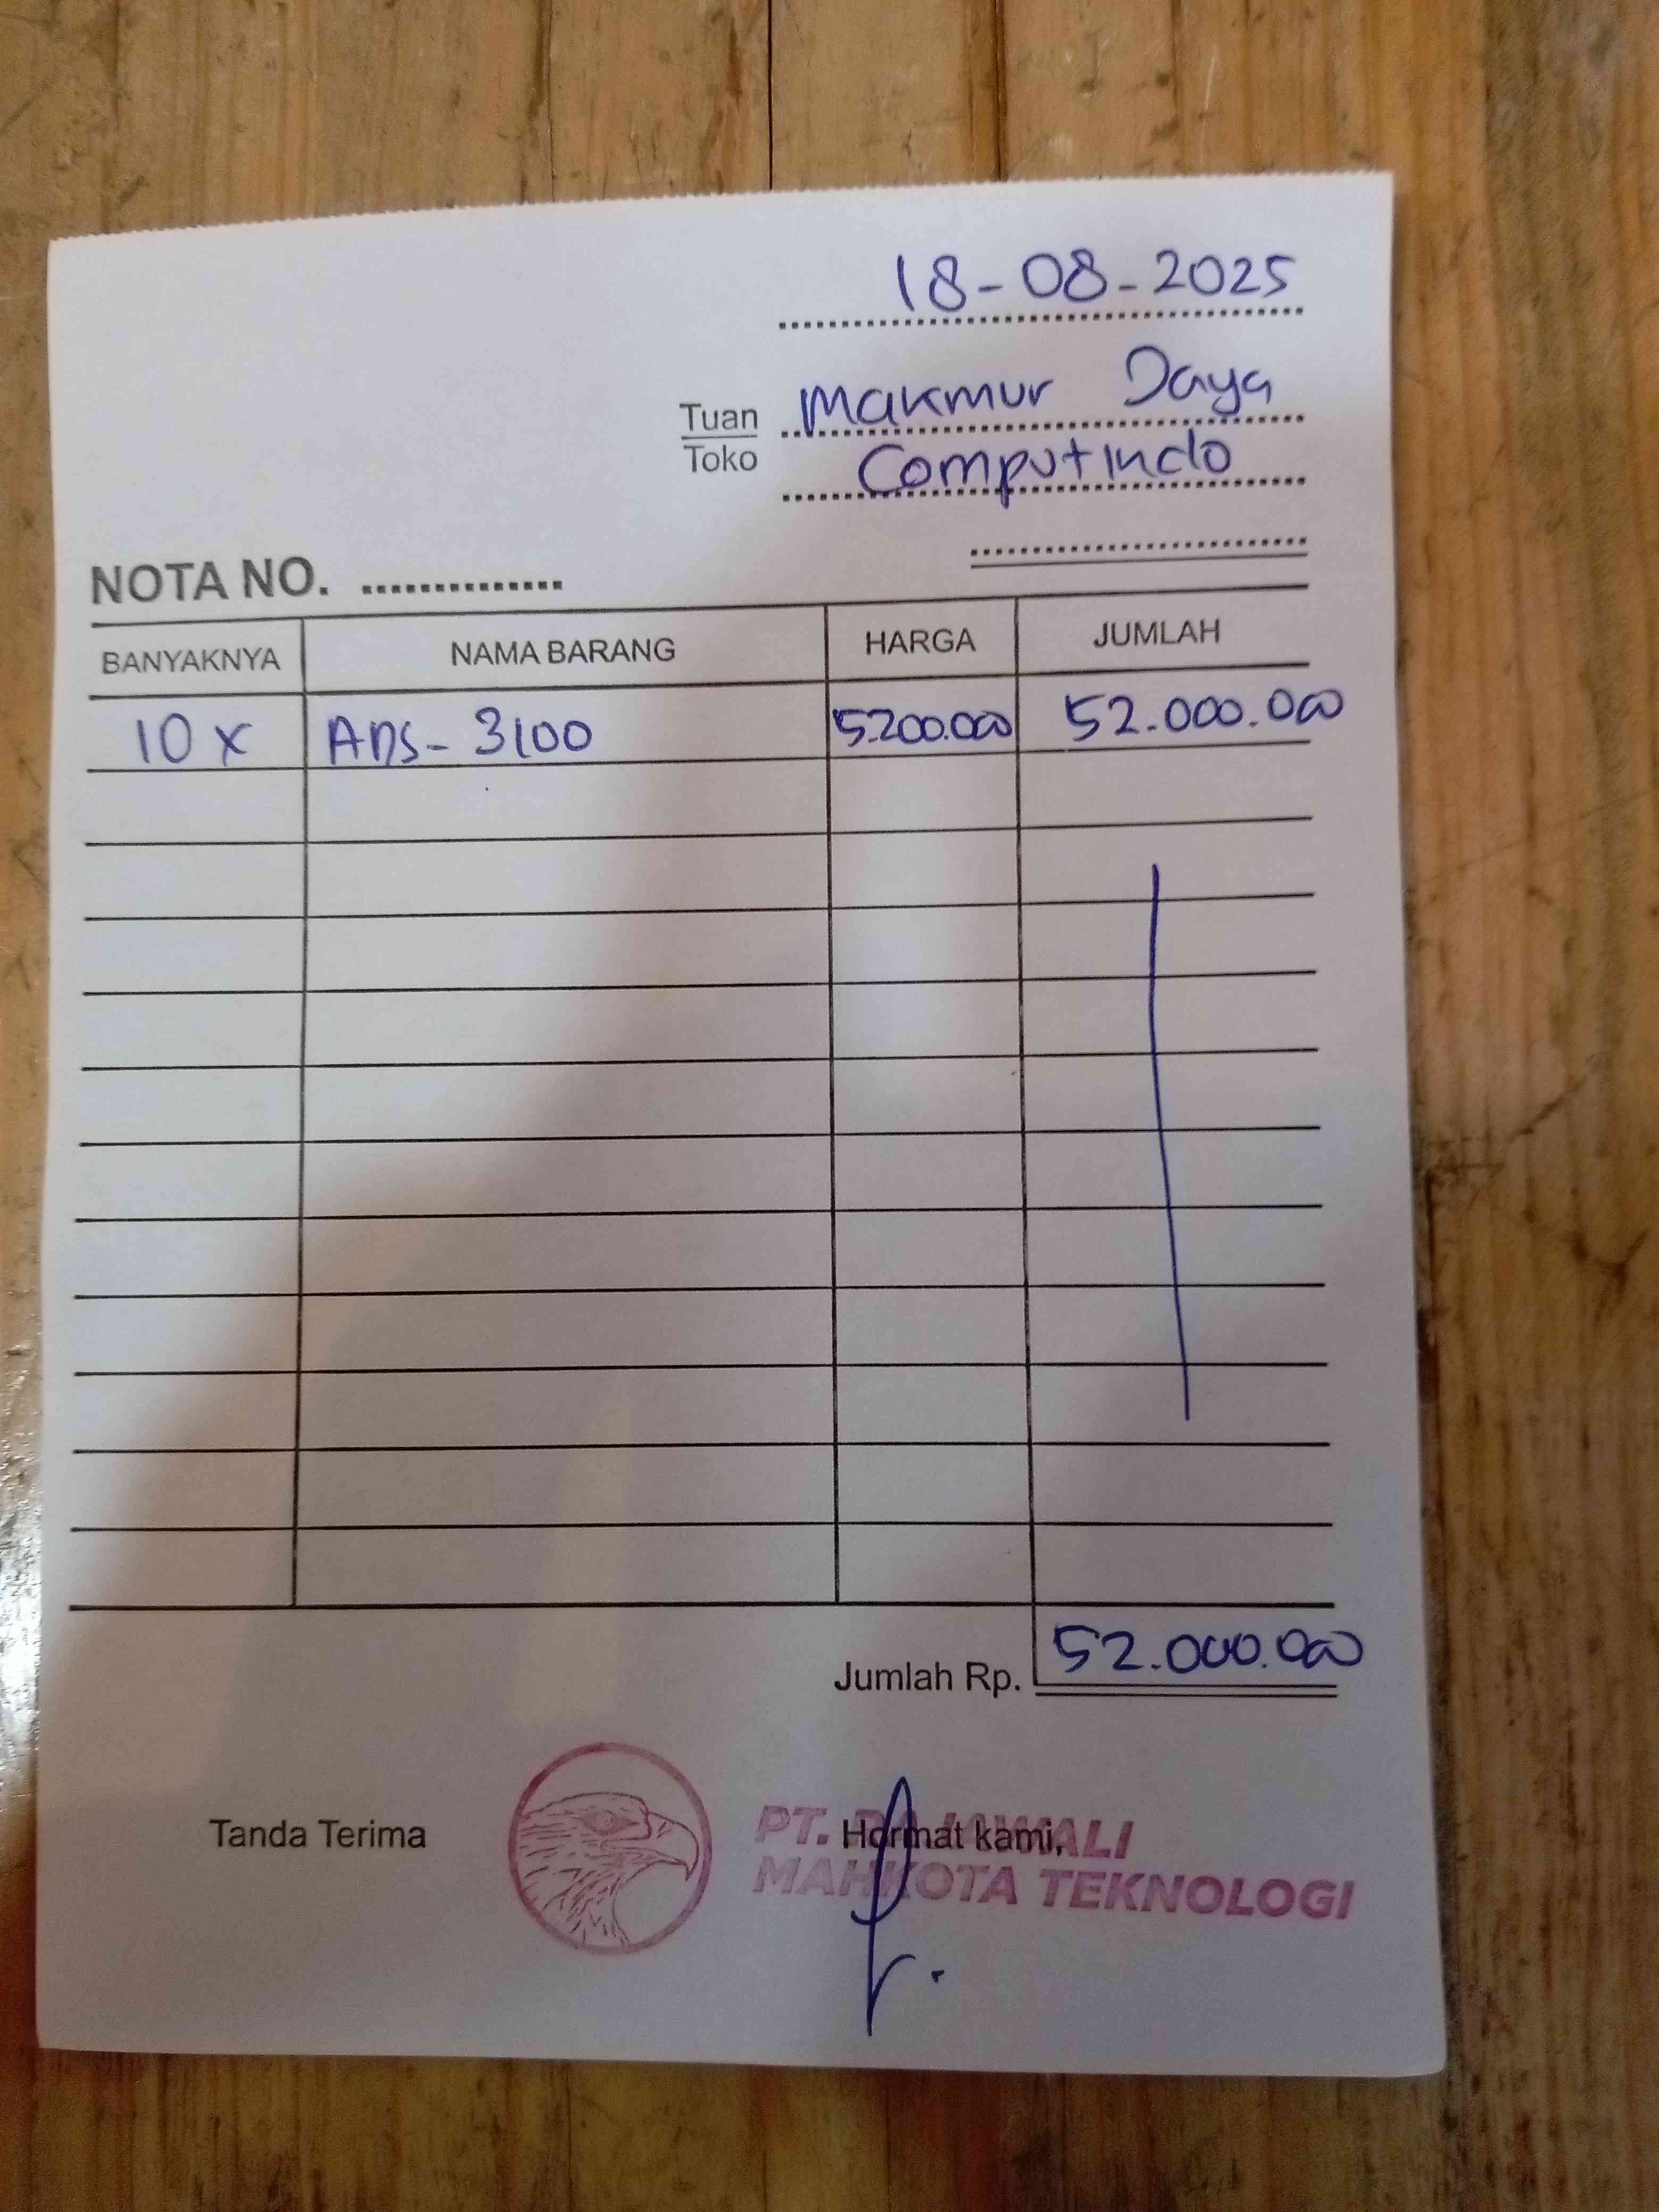 18-08-2025
Tuan Makmur Daya
Toko Computindo
NOTA NO. ..............
BANYAKNYA NAMA BARANG HARGA JUMLAH
10 x ADS-3100 5.200.000 52.000.000
Jumlah Rp. 52.000.000
Tanda Terima Hormat kami,
PT. RAJAWALI
MAHKOTA TEKNOLOGI